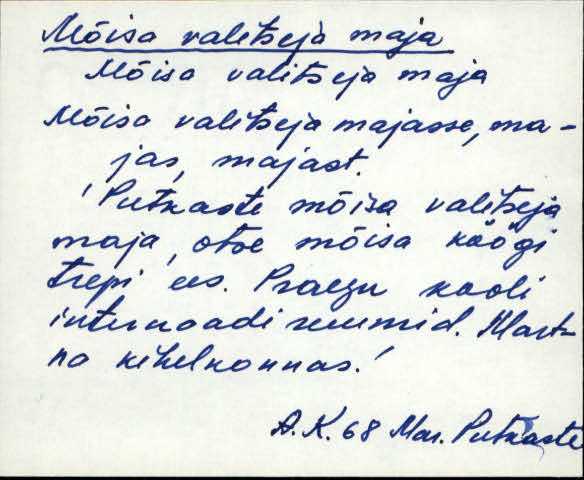 Mõisa valitseja maja
Mõisa valitseja maja
Mõisa valitseja majasse, ma-
jas, majast.
'Putkaste mõisa valitseja
maja, otse mõisa köögi
trepi ees. Praegu kooli
internaadi ruumid. Mart-
na kihelkonnas.'
A.K. 68 Mar. Putkaste